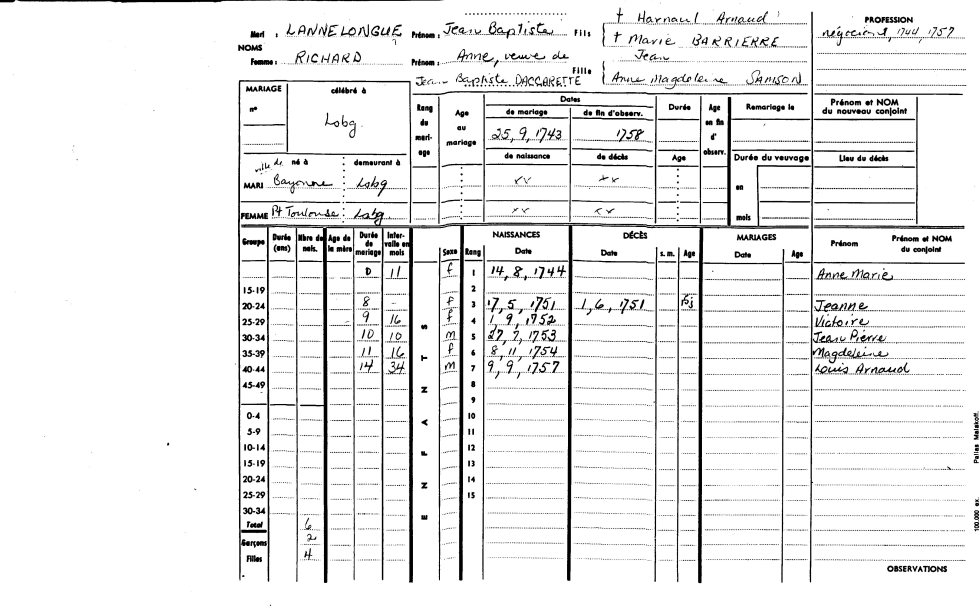 † Harnaul Arnaud PROFESSION
Mari : LANNELONGUE Prénom : Jean Baptiste Fils † Marie BARRIERRE négociant, 1744, 1757
NOMS
Femme : RICHARD Prénom : Anne, veuve de Fille Jean
Jean Baptiste DACCARETTE Anne Magdeleine SAMSON
MARIAGE célébré à Rang du mariage Age au mariage Dates Durée Age en fin d'observ. Remariage le Prénom et NOM du nouveau conjoint
n° Lobg. de mariage de fin d'observ.
25, 9, 1743 1758
ville de né à demeurant à de naissance de décès Age Durée du veuvage Lieu du décès
MARI Bayonne Lobg xx xx en
FEMME Pt Toulouse Lobg. xx xx mois
Groupe Durée (ans) Nbre de nais. Age de la mère Durée de mariage Intervalle en mois ENFANTS Sexe Rang NAISSANCES Date DÉCÈS Date s. m. Age MARIAGES Date Age Prénom Prénom et NOM du conjoint
0 11 f 1 14, 8, 1744 Anne Marie
15-19 2
20-24 8 - f 3 17, 5, 1751 1, 6, 1751 15j Jeanne
25-29 9 16 f 4 1, 9, 1752 Victoire
30-34 10 10 m 5 27, 7, 1753 Jean Pierre
35-39 11 16 f 6 8, 11, 1754 Magdeleine
40-44 14 34 m 7 9, 9, 1757 Louis Arnaud
45-49 8
9
0-4 10
5-9 11
10-14 12
15-19 13
20-24 14
25-29 15
30-34
Total 6
Garçons 2
Filles 4
OBSERVATIONS
100.000 ex. Pallas Malakoff.